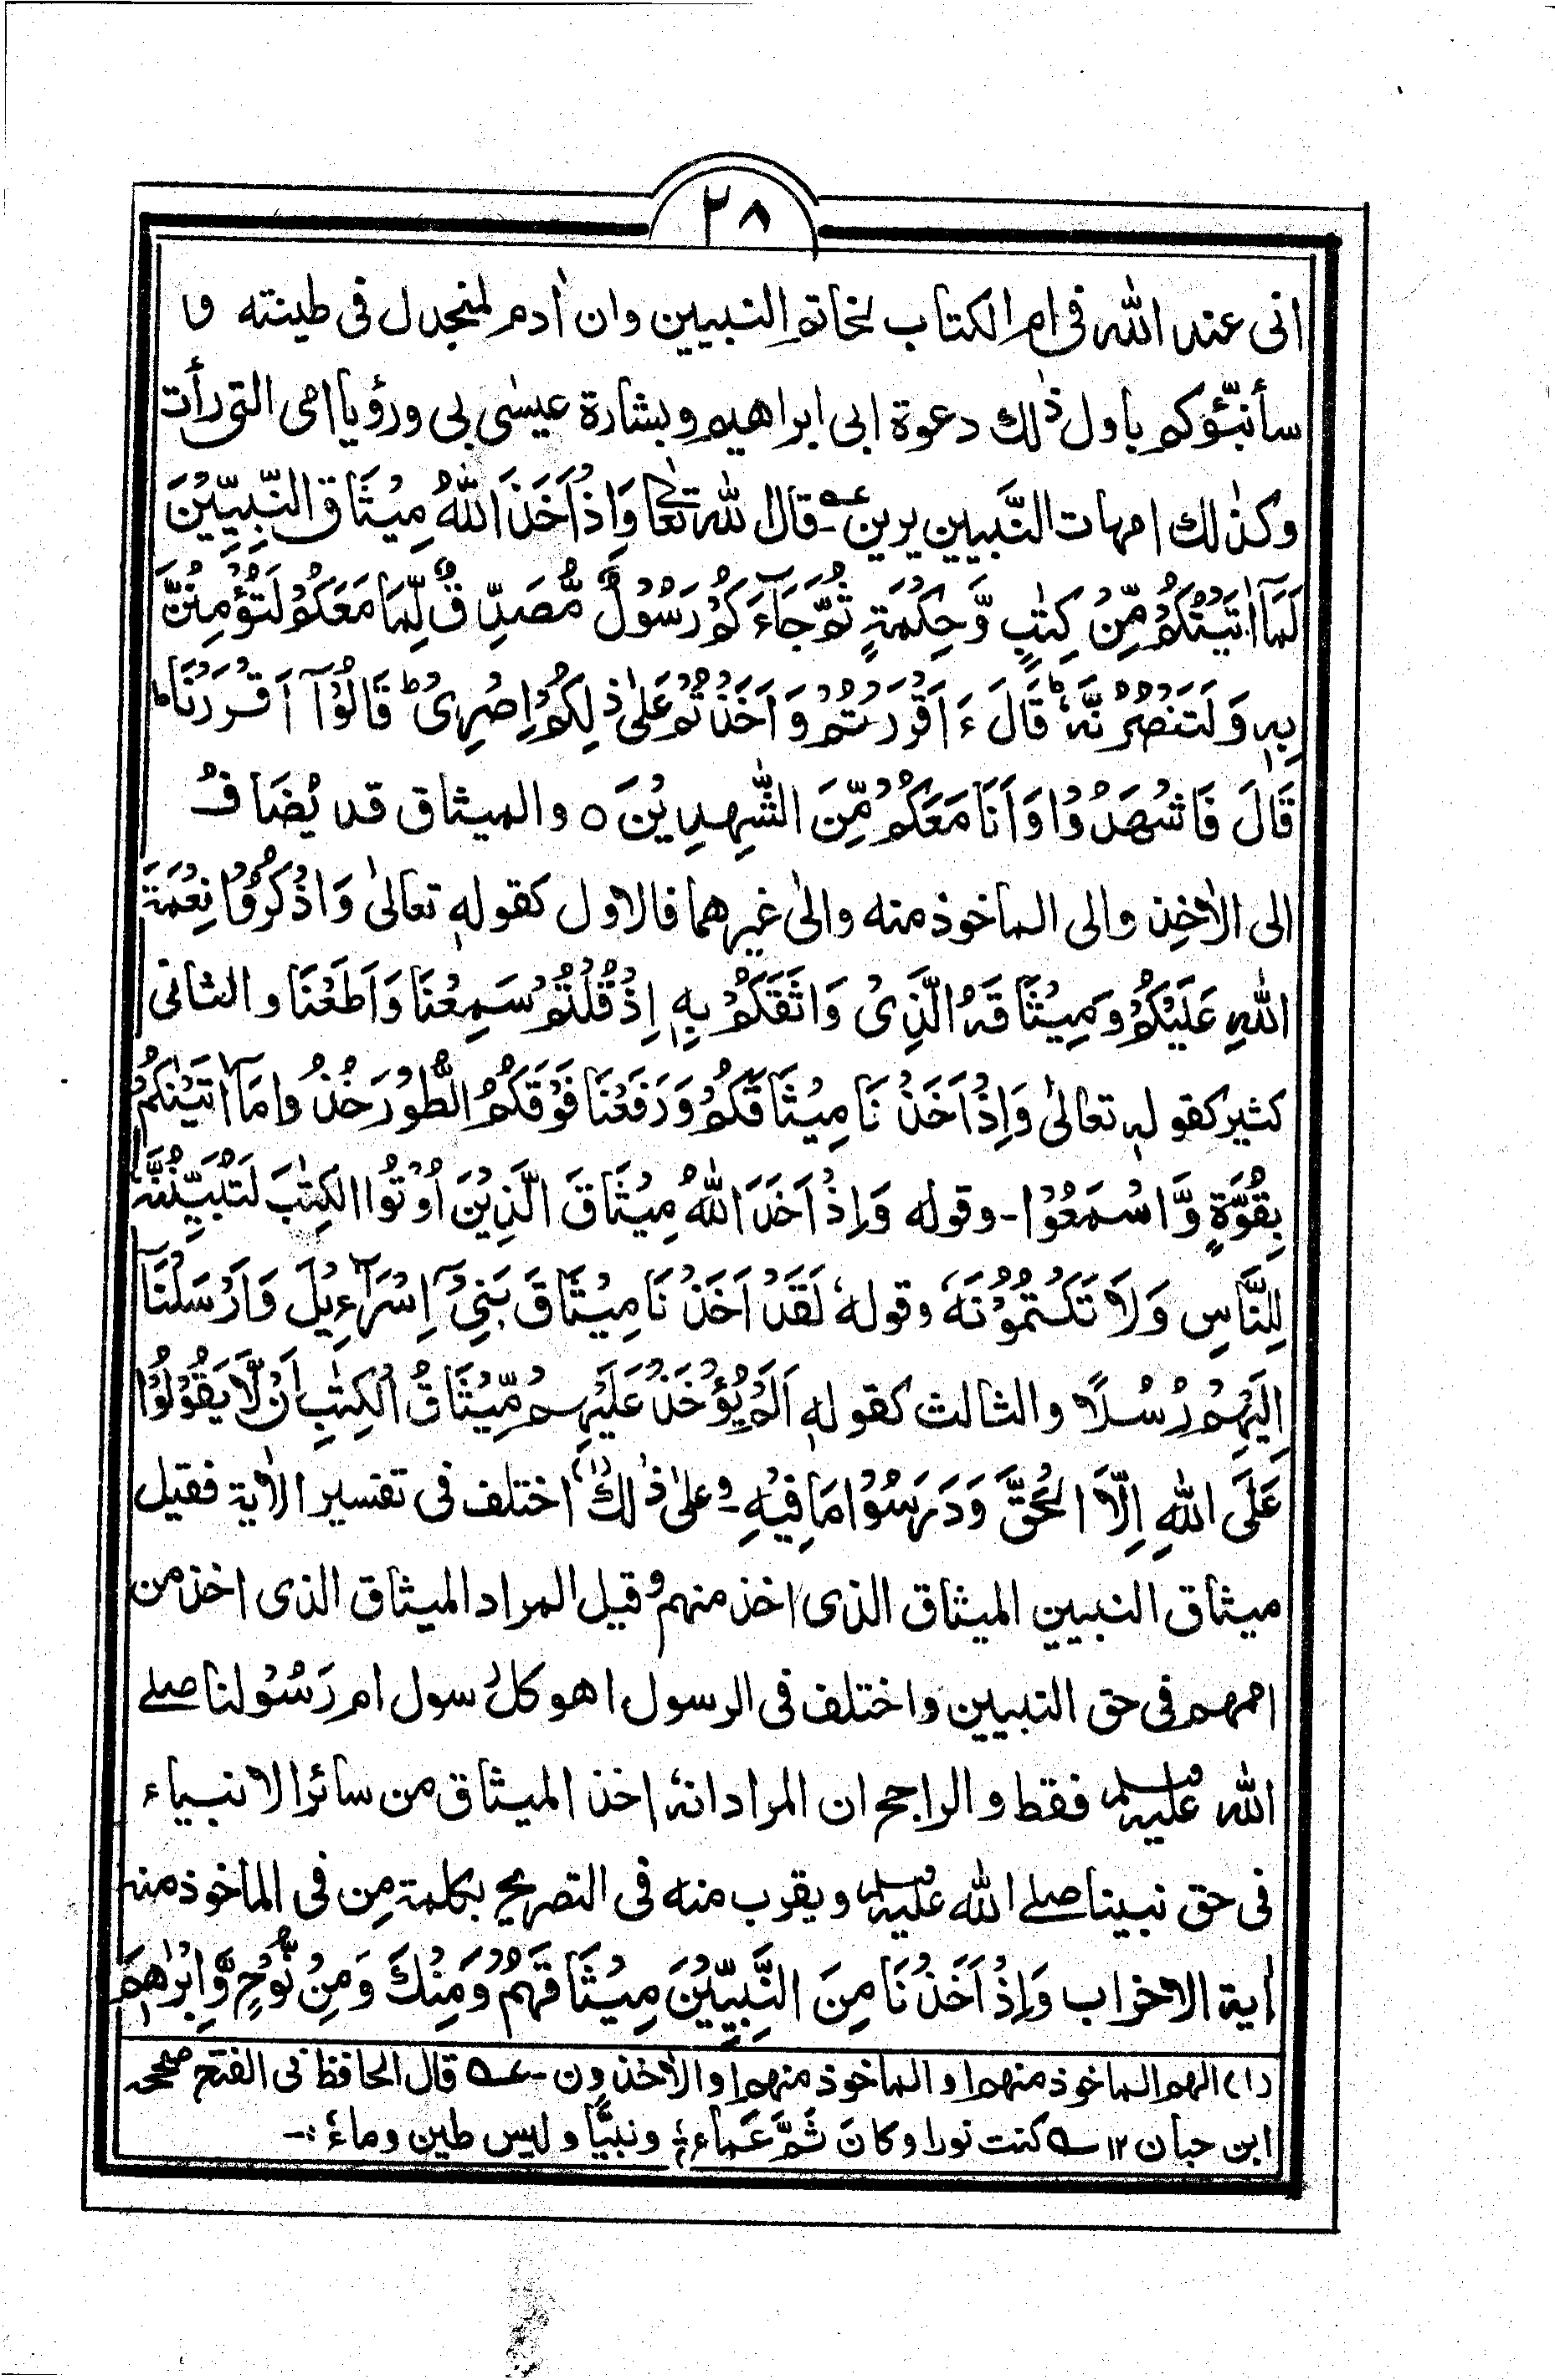 ٢٨
انی عند اللّٰه فی ام الکتاب لخاتم النبیین وان اٰدم لمنجدل فی طینته و
سأنبّؤکم باول ذٰلك دعوة ابی ابراهیم وبشارة عیسٰی بی ورؤیا امی التی رأت
وکذٰلك امهات النَّبیین یرین ۔ قال اللّٰه تعالٰے وَاِذْ اَخَذَ اللّٰهُ مِیْثَاقَ النَّبِیِّیْنَ
لَمَآ اٰتَیْتُکُمْ مِّنْ کِتٰبٍ وَّحِکْمَةٍ ثُمَّ جَآءَکُمْ رَسُوْلٌ مُّصَدِّقٌ لِّمَا مَعَکُمْ لَتُؤْمِنُنَّ
بِهٖ وَلَتَنْصُرُنَّهٗ ؕ قَالَ ءَاَقْرَرْتُمْ وَاَخَذْتُمْ عَلٰی ذٰلِکُمْ اِصْرِیْ ؕ قَالُوْٓا اَقْرَرْنَا ؕ
قَالَ فَاشْهَدُوْا وَاَنَا مَعَکُمْ مِّنَ الشّٰهِدِیْنَ ○ والمیثاق قد یُضَافُ
الی الاٰخِذ والی الماخوذ منه والیٰ غیرهما فالاول کقولهٖ تعالیٰ وَاذْکُرُوْا نِعْمَةَ
اللّٰهِ عَلَیْکُمْ وَمِیْثَاقَهُ الَّذِیْ وَاثَقَکُمْ بِهٖ اِذْ قُلْتُمْ سَمِعْنَا وَاَطَعْنَا والثانی
کثیر کقولهٖ تعالیٰ وَاِذْ اَخَذْنَا مِیْثَاقَکُمْ وَرَفَعْنَا فَوْقَکُمُ الطُّوْرَ خُذُوا مَآ اٰتَیْنٰکُمْ
بِقُوَّةٍ وَّاسْمَعُوْا ۔ وقوله وَاِذْ اَخَذَ اللّٰهُ مِیْثَاقَ الَّذِیْنَ اُوْتُوا الکِتٰبَ لَتُبَیِّنُنَّهٗ
لِلنَّاسِ وَلاَ تَکْتُمُوْنَهٗ وقولهٗ لَقَدْ اَخَذْنَا مِیْثَاقَ بَنِیْٓ اِسْرَآءِیْلَ وَاَرْسَلْنَآ
اِلَیْهِمْ رُسُلاً والثالث کقولهٖ اَلَمْ یُؤْخَذْ عَلَیْهِمْ مِّیْثَاقُ الْکِتٰبِ اَنْ لَّا یَقُوْلُوْا
عَلَی اللّٰهِ اِلَّا الْحَقَّ وَدَرَسُوْا مَا فِیْهِ ۔ وعلیٰ ذٰلك (۱) اختلف فی تفسیر الاٰیة فقیل
میثاق النبیین المیثاق الذی اخذ منهم وقیل المراد المیثاق الذی اخذ من
اممهم فی حق النبیین واختلف فی الرسول اهو کل رسول ام رَسُوْلنا صلے
اللّٰه علیه وسلم فقط والراجح ان المراد انهٗ اخذ المیثاق من سائر الانبیاء
فی حق نبینا صلے اللّٰه علیه وسلم ویقرب منه فی التصریح بکلمة مِن فی الماخوذ منه
اٰیة الاحزاب وَاِذْ اَخَذْنَا مِنَ النَّبِیِّیْنَ مِیْثَاقَهُمْ وَمِنْكَ وَمِنْ نُّوْحٍ وَّاِبْرٰهِیْمَ
(۱) الهم الماخوذ منهم او الماخوذ منهم والاٰخذون ۔ قال الحافظ فی الفتح صححه
ابن حبان ۱۲ کنت نورا وکان ثَمَّ عَمَاء ونبیًّا ولیس طین وماء ۔